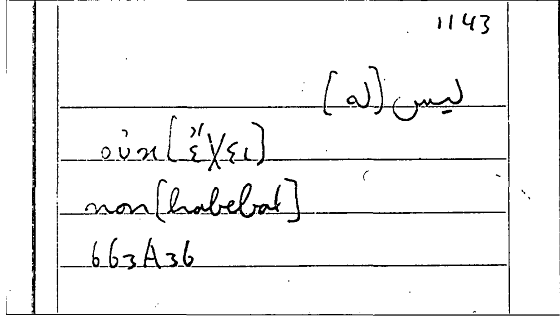 1143
ليس [له]
οὐκ [ἔχει]
non [habebat]
663A36